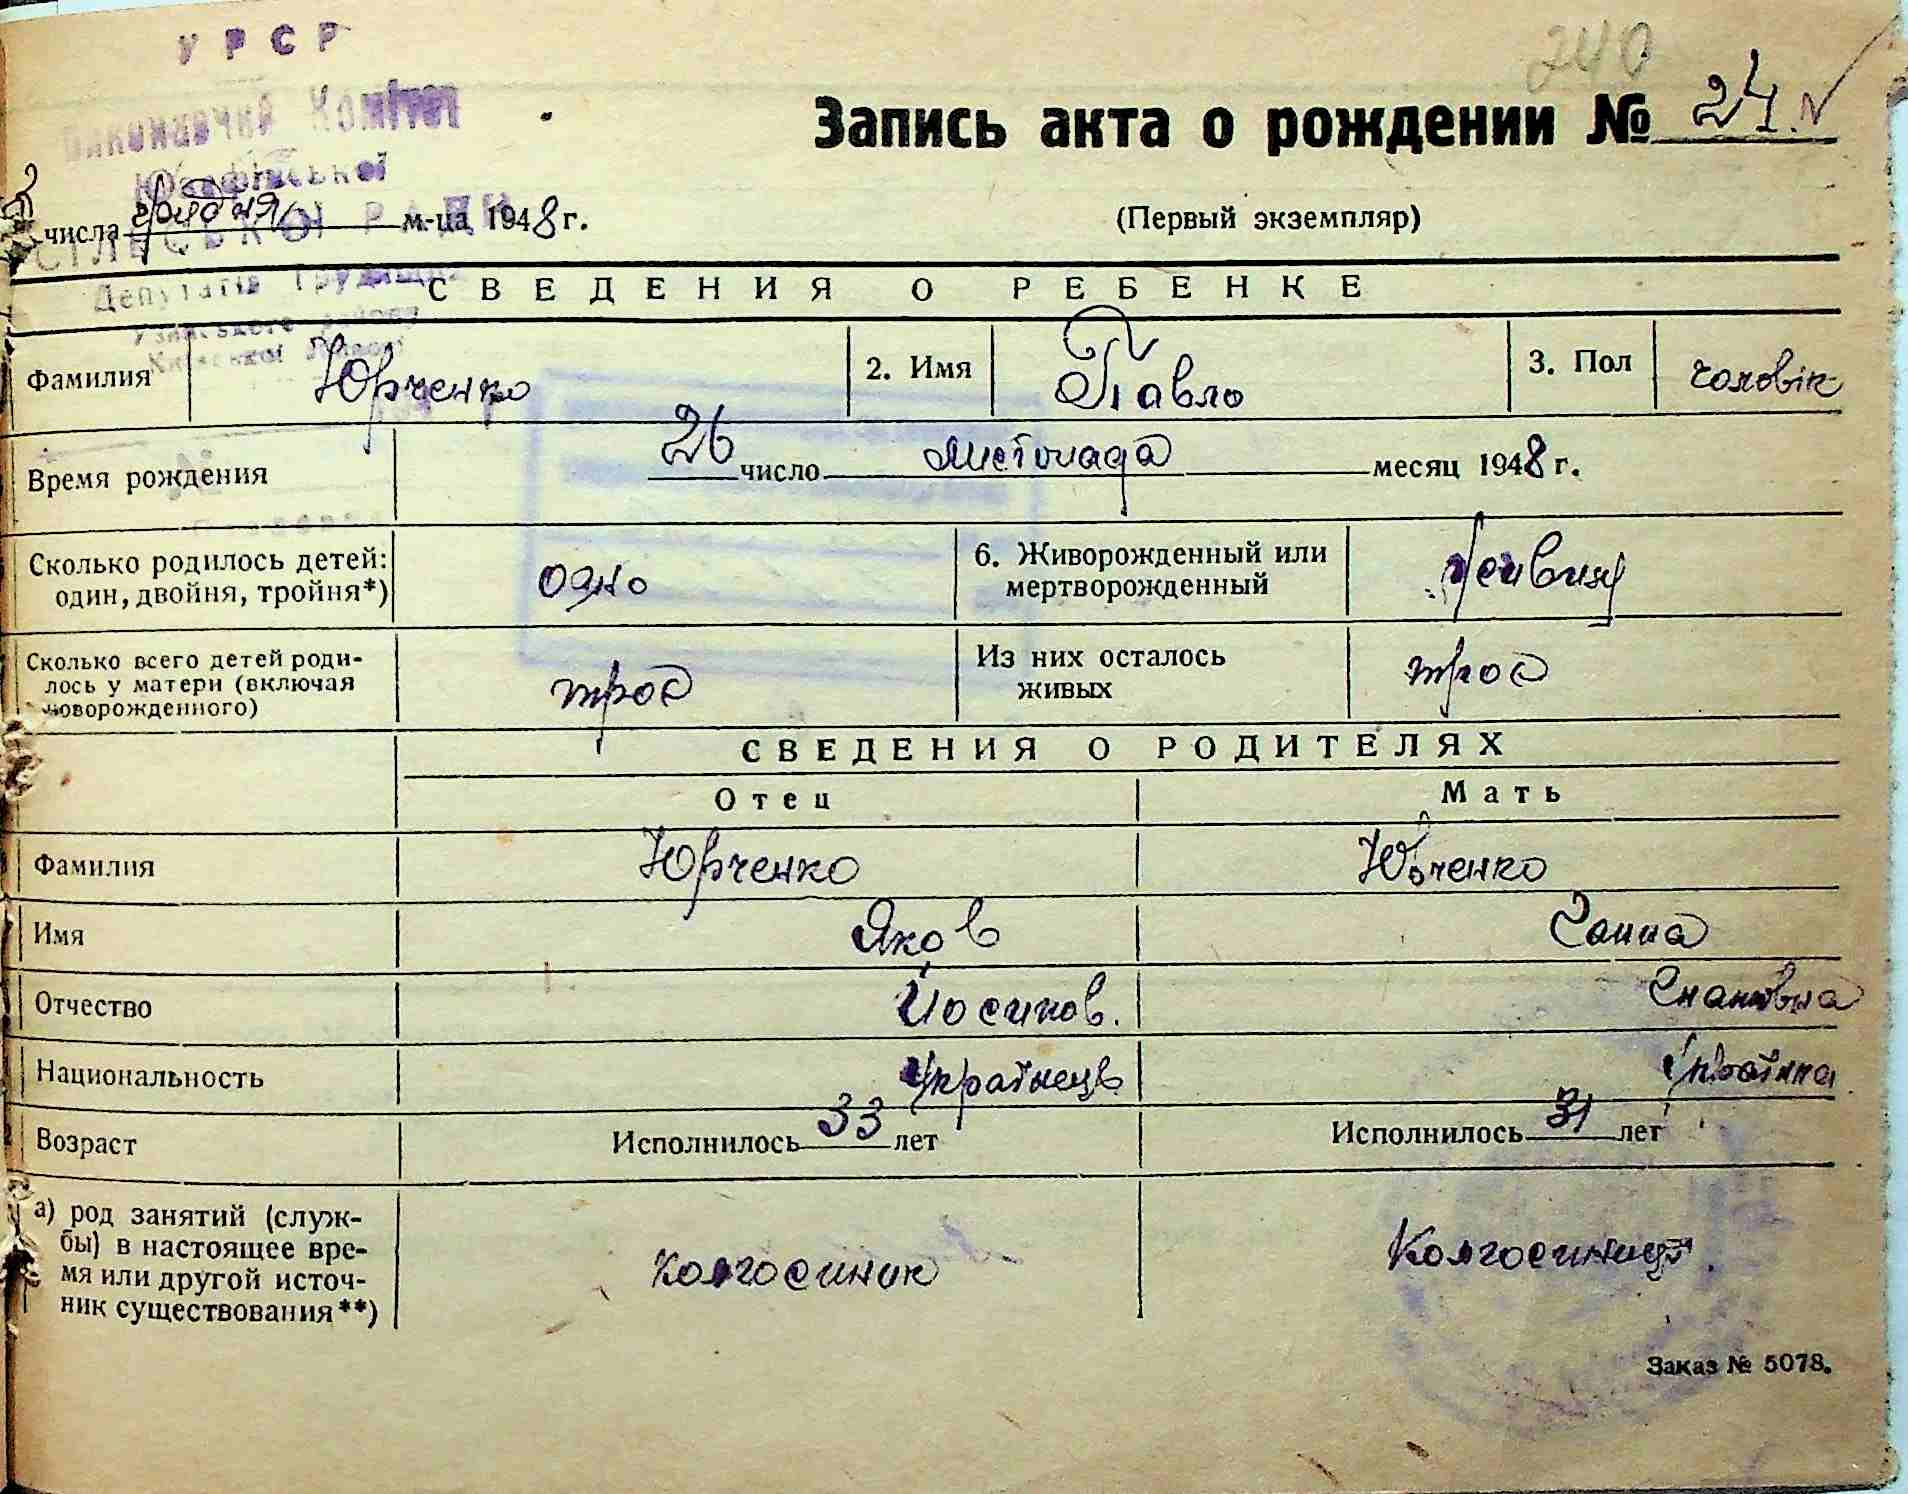 УРСР
240
Виконавчий Комітет
Запись акта о рождении № 24.
Юзефівської
числа грудня м-ца 1948 г.
(Первый экземпляр)
СІЛЬСЬКОЇ РАДИ
Депутатів Трудящих
СВЕДЕНИЯ О РЕБЕНКЕ
Узинського району
Київської
Фамилия Юрченко 2. Имя Павло 3. Пол чоловік
Время рождения 26 число листопада месяц 1948 г.
Сколько родилось детей: один, двойня, тройня*) одно 6. Живорожденный или мертворожденный
Сколько всего детей роди-
лось у матери (включая
новорожденного) троє Из них осталось живых троє
СВЕДЕНИЯ О РОДИТЕЛЯХ
Отец Мать
Фамилия Юрченко Юрченко
Имя Яков Ганна
Отчество Йосипов.
Национальность Українець Українка
Возраст Исполнилось 33 лет Исполнилось 31 лет
а) род занятий (служ-
бы) в настоящее вре-
мя или другой источ-
ник существования**) Колгоспник Колгоспниця.
Заказ № 5078.